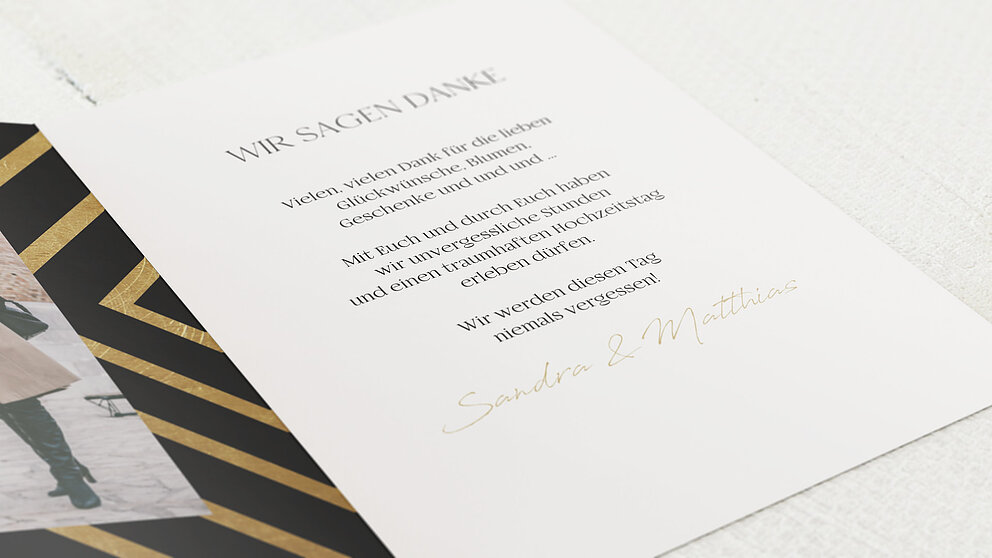 WIR SAGEN DANKE
Vielen, vielen Dank für die lieben
Glückwünsche, Blumen,
Geschenke und und und ...
Mit Euch und durch Euch haben
wir unvergessliche Stunden
und einen traumhaften Hochzeitstag
erleben dürfen.
Wir werden diesen Tag
niemals vergessen!
Sandra & Matthias